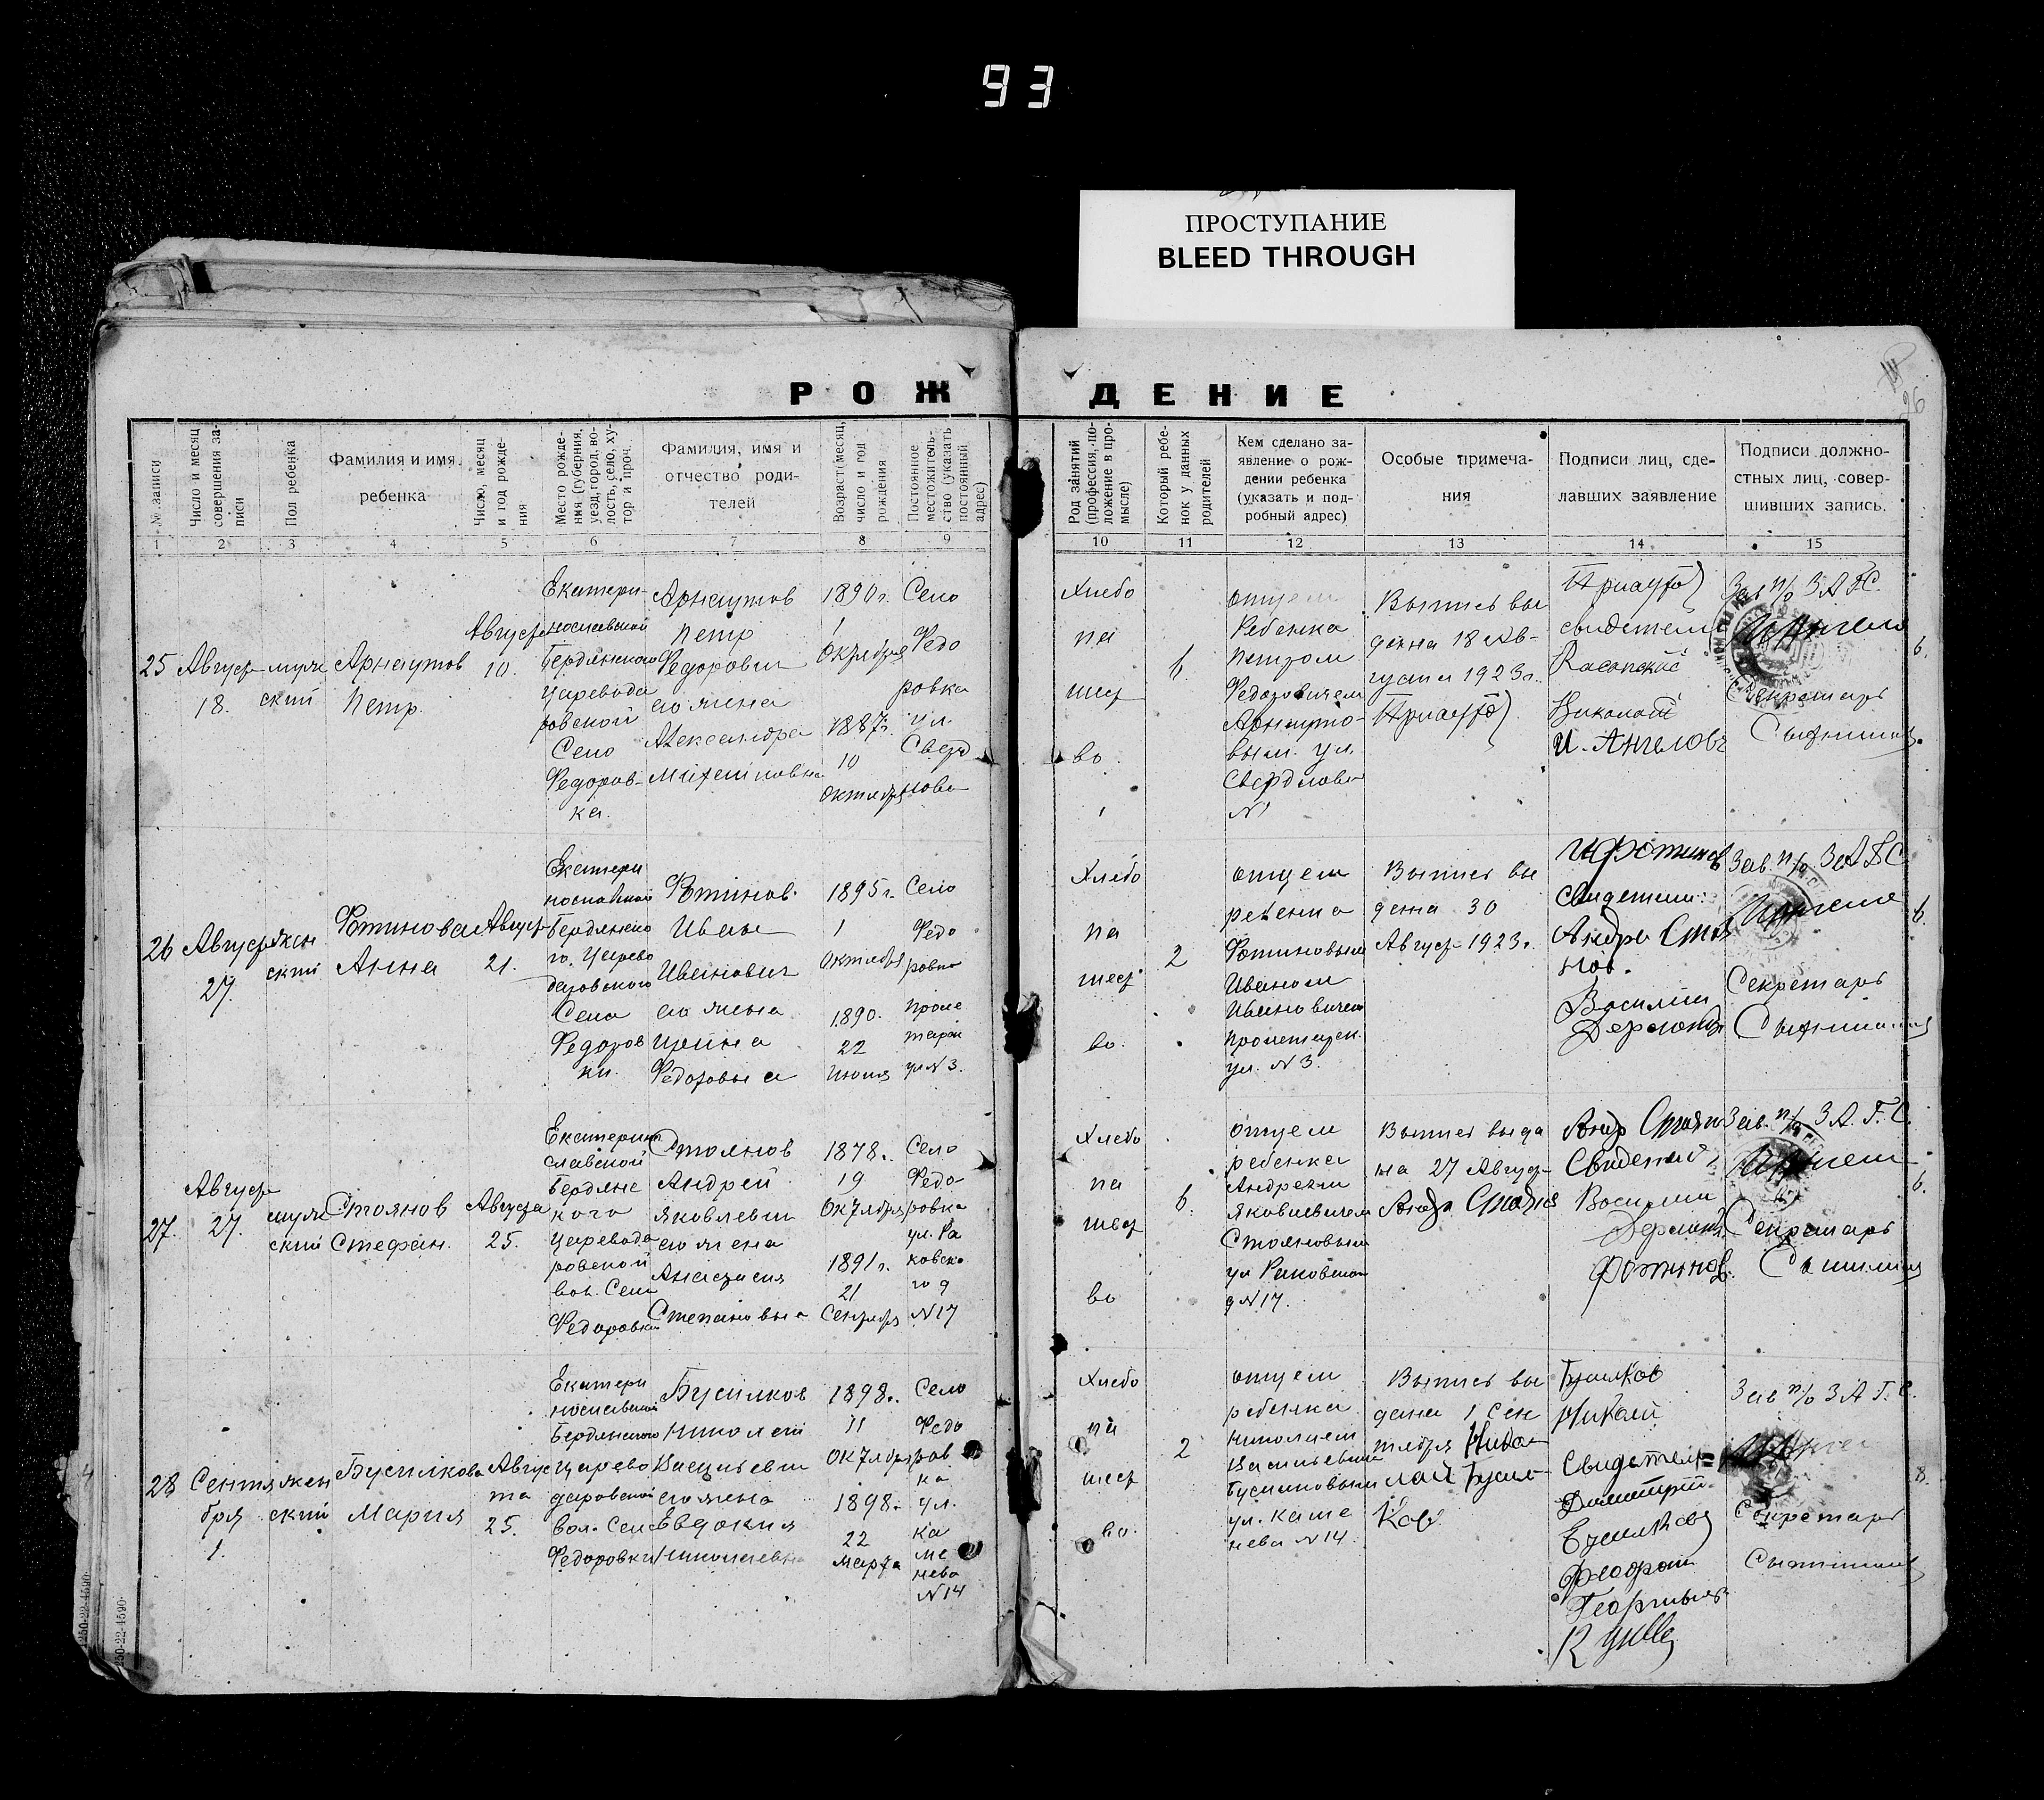 93
ПРОСТУПАНИЕ
BLEED THROUGH
РОЖДЕНИЕ
№ записи
Число и месяц
совершения за-
писи
Пол ребенка
Фамилия и имя
ребенка
Число, месяц
и год рожде-
ния
Место рожде-
ния (губерния,
уезд, город, во-
лость, село, ху-
тор и проч.
Фамилия, имя и
отчество роди-
телей
Возраст (месяц,
число и год
рождения
Постоянное
местожитель-
ство (указать
постоянный
адрес)
Род занятий
(профессия, по-
ложение в про-
мысле)
Который ребе-
нок у данных
родителей
Кем сделано за-
явление о рож-
дении ребенка
(указать и под-
робный адрес)
Особые примеча-
ния
Подписи лиц, сде-
лавших заявление
Подписи должно-
стных лиц, совер-
шивших запись.
1 2 3 4 5 6 7 8 9 10 11 12 13 14 15
25
Август
18.
муж
ский
Арнаутов
Петр.
Август
10.
Екатери-
нославской
Бердянского
Царевода
ровской
Село
Федоров-
ка.
Арнаутов
Петр
Федорович
его жена
Александра
1890 г.
1
Октября
1887 г.
10
Октября
Село
Федо
ровка
ул.
Сверд
лова
Хлебо
па
шест
во
6.
отцем
Ребенка
Петром
Федоровичем
Арнауто-
вым. ул.
Свердлова
N 1
Выпись вы
дана 18 Ав-
густа 1923 г.
свидетели
Николай
И. Ангелов
Зав. п/о ЗАГС.
Секретарь
6.
26
Август
27.
жен
ский
Фотинова
Анна
Август
21.
Екатери
нославской
Бердянско
го, Царево
даровского
Села
Федоров
ки.
Фотинов.
Иван
Иванович
его жена
Ирина
Федоровна
1895 г.
1
Октября
1890.
22
Июня
Село
Федо
ровка
проле
тарск
ул N 3.
Хлебо
па
шест
во.
2
отцем
ребенка
Фотиновым
Иваном
Ивановичем
пролетарск.
ул. N 3.
Выпись вы
дана 30
Август 1923 г.
Свидетели:
Василий
Зав. п/о ЗАГС
Секретарь
6.
27.
Август
27.
муж
ский
Стоянов
Стефан.
Августа
25.
Екатерино
славской
Бердянс
кого
Царевода
ровской
вол. Села
Федоровки
Стоянов
Андрей
Яковлевич
его жена
Анастасия
Степановна
1878 г.
19
Октября
1891 г.
21
Сентября
Село
Федо-
ровка
ул. Ра
ковско
го д
N 17
Хлебо
па
шест
во
6.
отцем
ребенка
Андреем
Яковлевичем
Стояновым
ул Раковского
д N 17.
Выпись выда
на 27 Август
Василий
Фотинов.
Зав. п/о З.А.Г.С.
Секретарь
6.
28
Сентя
бря
1.
жен
ский
Бусилкова
Мария
Авгус
та
25.
Екатери
нославской
Бердянского
Царево
даровской
вол. Села
Федоровки
Бусилков
Николай
Васильевич
его жена
Евдокия
Николаевна
1898 г.
11
Октября
1898 г.
22
Марта
Село
Федо
ров
ка
ул.
Ка
ме
нева
N 14
Хлебо
па
шест
во.
2
отцем
ребенка
Николаем
Васильевичем
Бусилковым
ул. Каме
нева N 14.
Выпись вы
дана 1 Сен
тября Нико-
лай Бусил-
ков
Бусилков
Николай
Свидетели=
Димитрий
Бусилков
Зав п/о ЗАГС.
Секретарь
8.